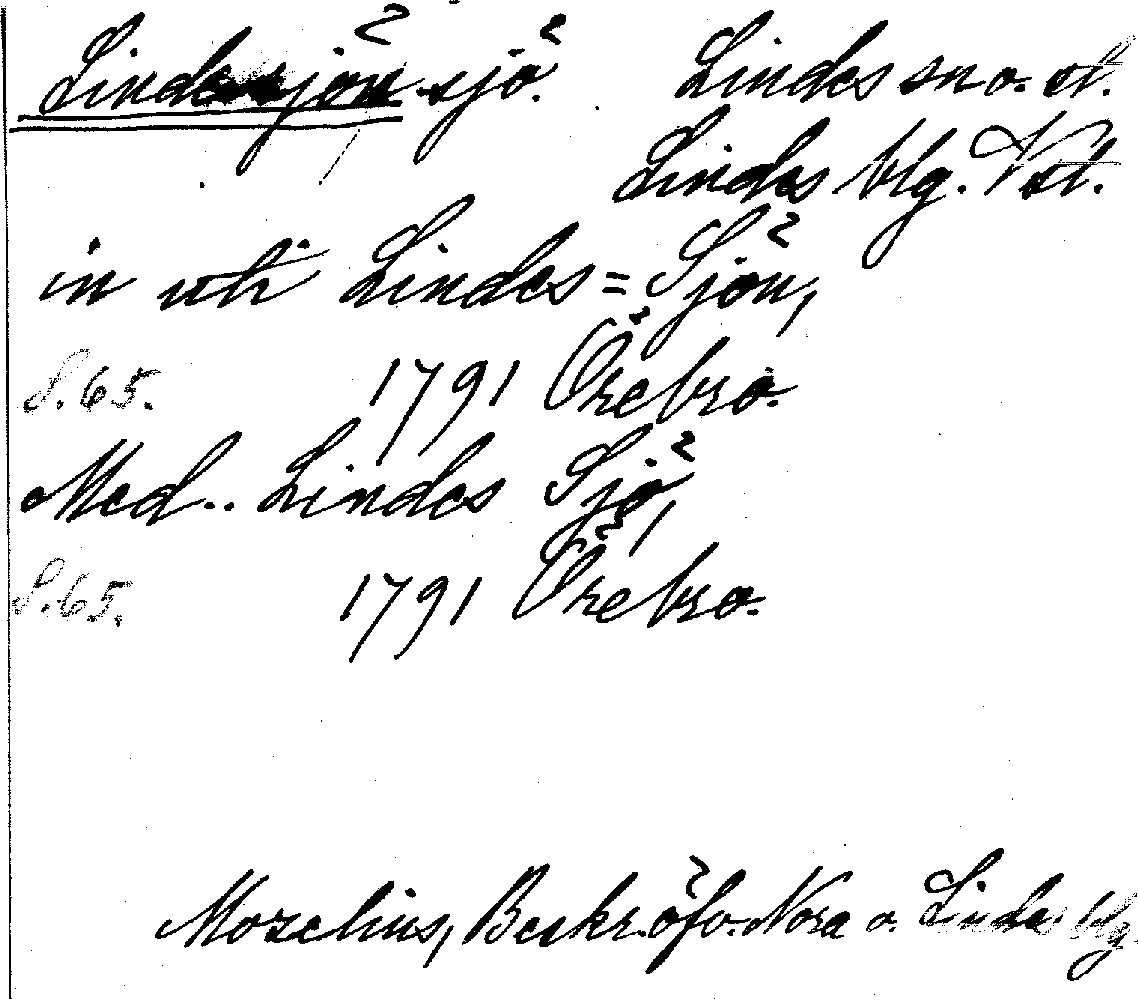 Lindessjön -sjö. Lindes sn o. st.
Lindes blg. Vstl.
in uti Lindes=Sjön,
S. 65. 1791 Örebro.
Med.. Lindes Sjö,
S. 65. 1791 Örebro.
Moselius, Beskr. öfv. Nora o. Linde blg.